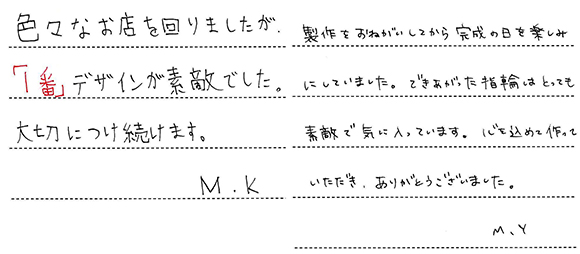 色々なお店を回りましたが、
「1番」デザインが素敵でした。
大切につけ続けます。
M.K
製作をおねがいしてから完成の日を楽しみ
にしていました。できあがった指輪はとっても
素敵で気に入っています。心を込めて作って
いただき、ありがとうございました。
M.Y